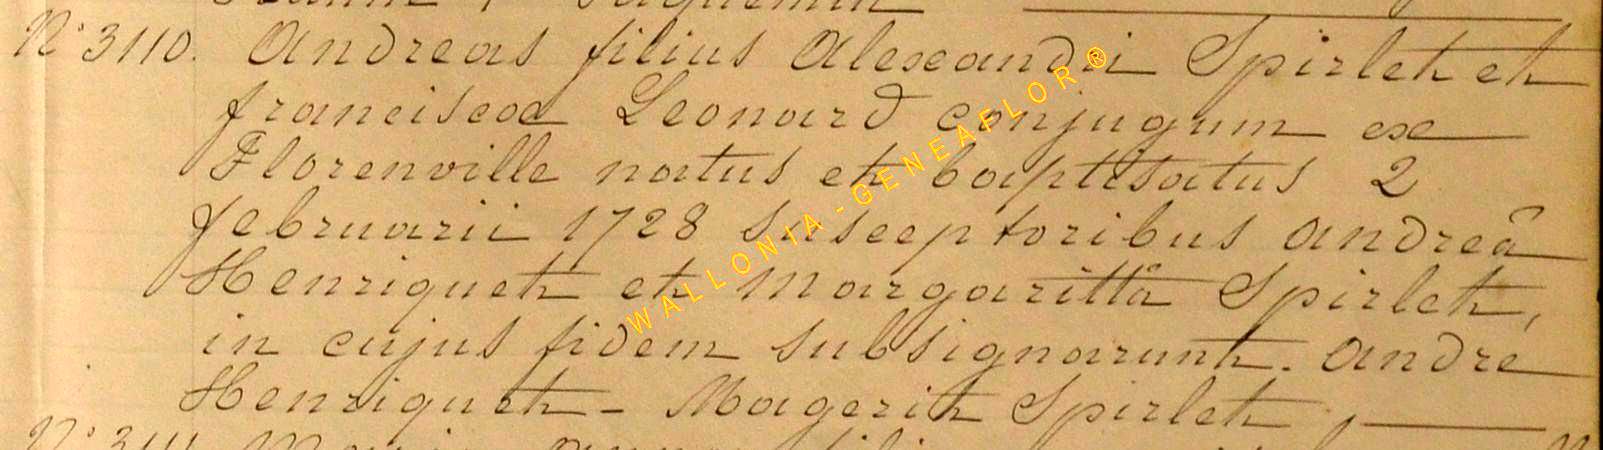 N° 3110. Andreas filius Alexandri Spirlet et
francisca Leonard conjugum ex
Florenville natus et baptisatus 2
februarii 1728 Susceptoribus andreâ
Henriquet et Margarittâ Spirlet,
in cujus fidem subsignarunt. andre
Henriquet - Magerit Spirlet,
N° 3111.
WALLONIA - GENEAFLOR ®